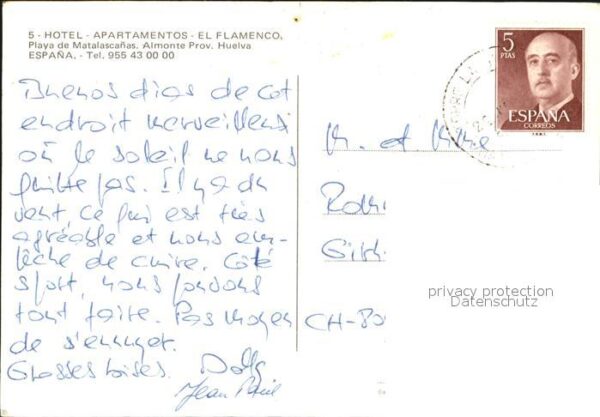 5 - HOTEL - APARTAMENTOS - EL FLAMENCO.
Playa de Matalascañas. Almonte Prov. Huelva
ESPAÑA. - Tel. 955 43 00 00
Buenos dias de cet
endroit merveilleux
où le soleil ne nous
quitte pas. Il y a du
vent, ce qui est très
agréable et nous em-
pêche de cuire. Côté
sport, nous faisons
tout faire. Pas moyen
de s'ennuyer.
Grosses bises. Dolly
Jean Paul
5
PTAS
ESPAÑA
CORREOS
M. et Mme
CH-
privacy protection
Datenschutz